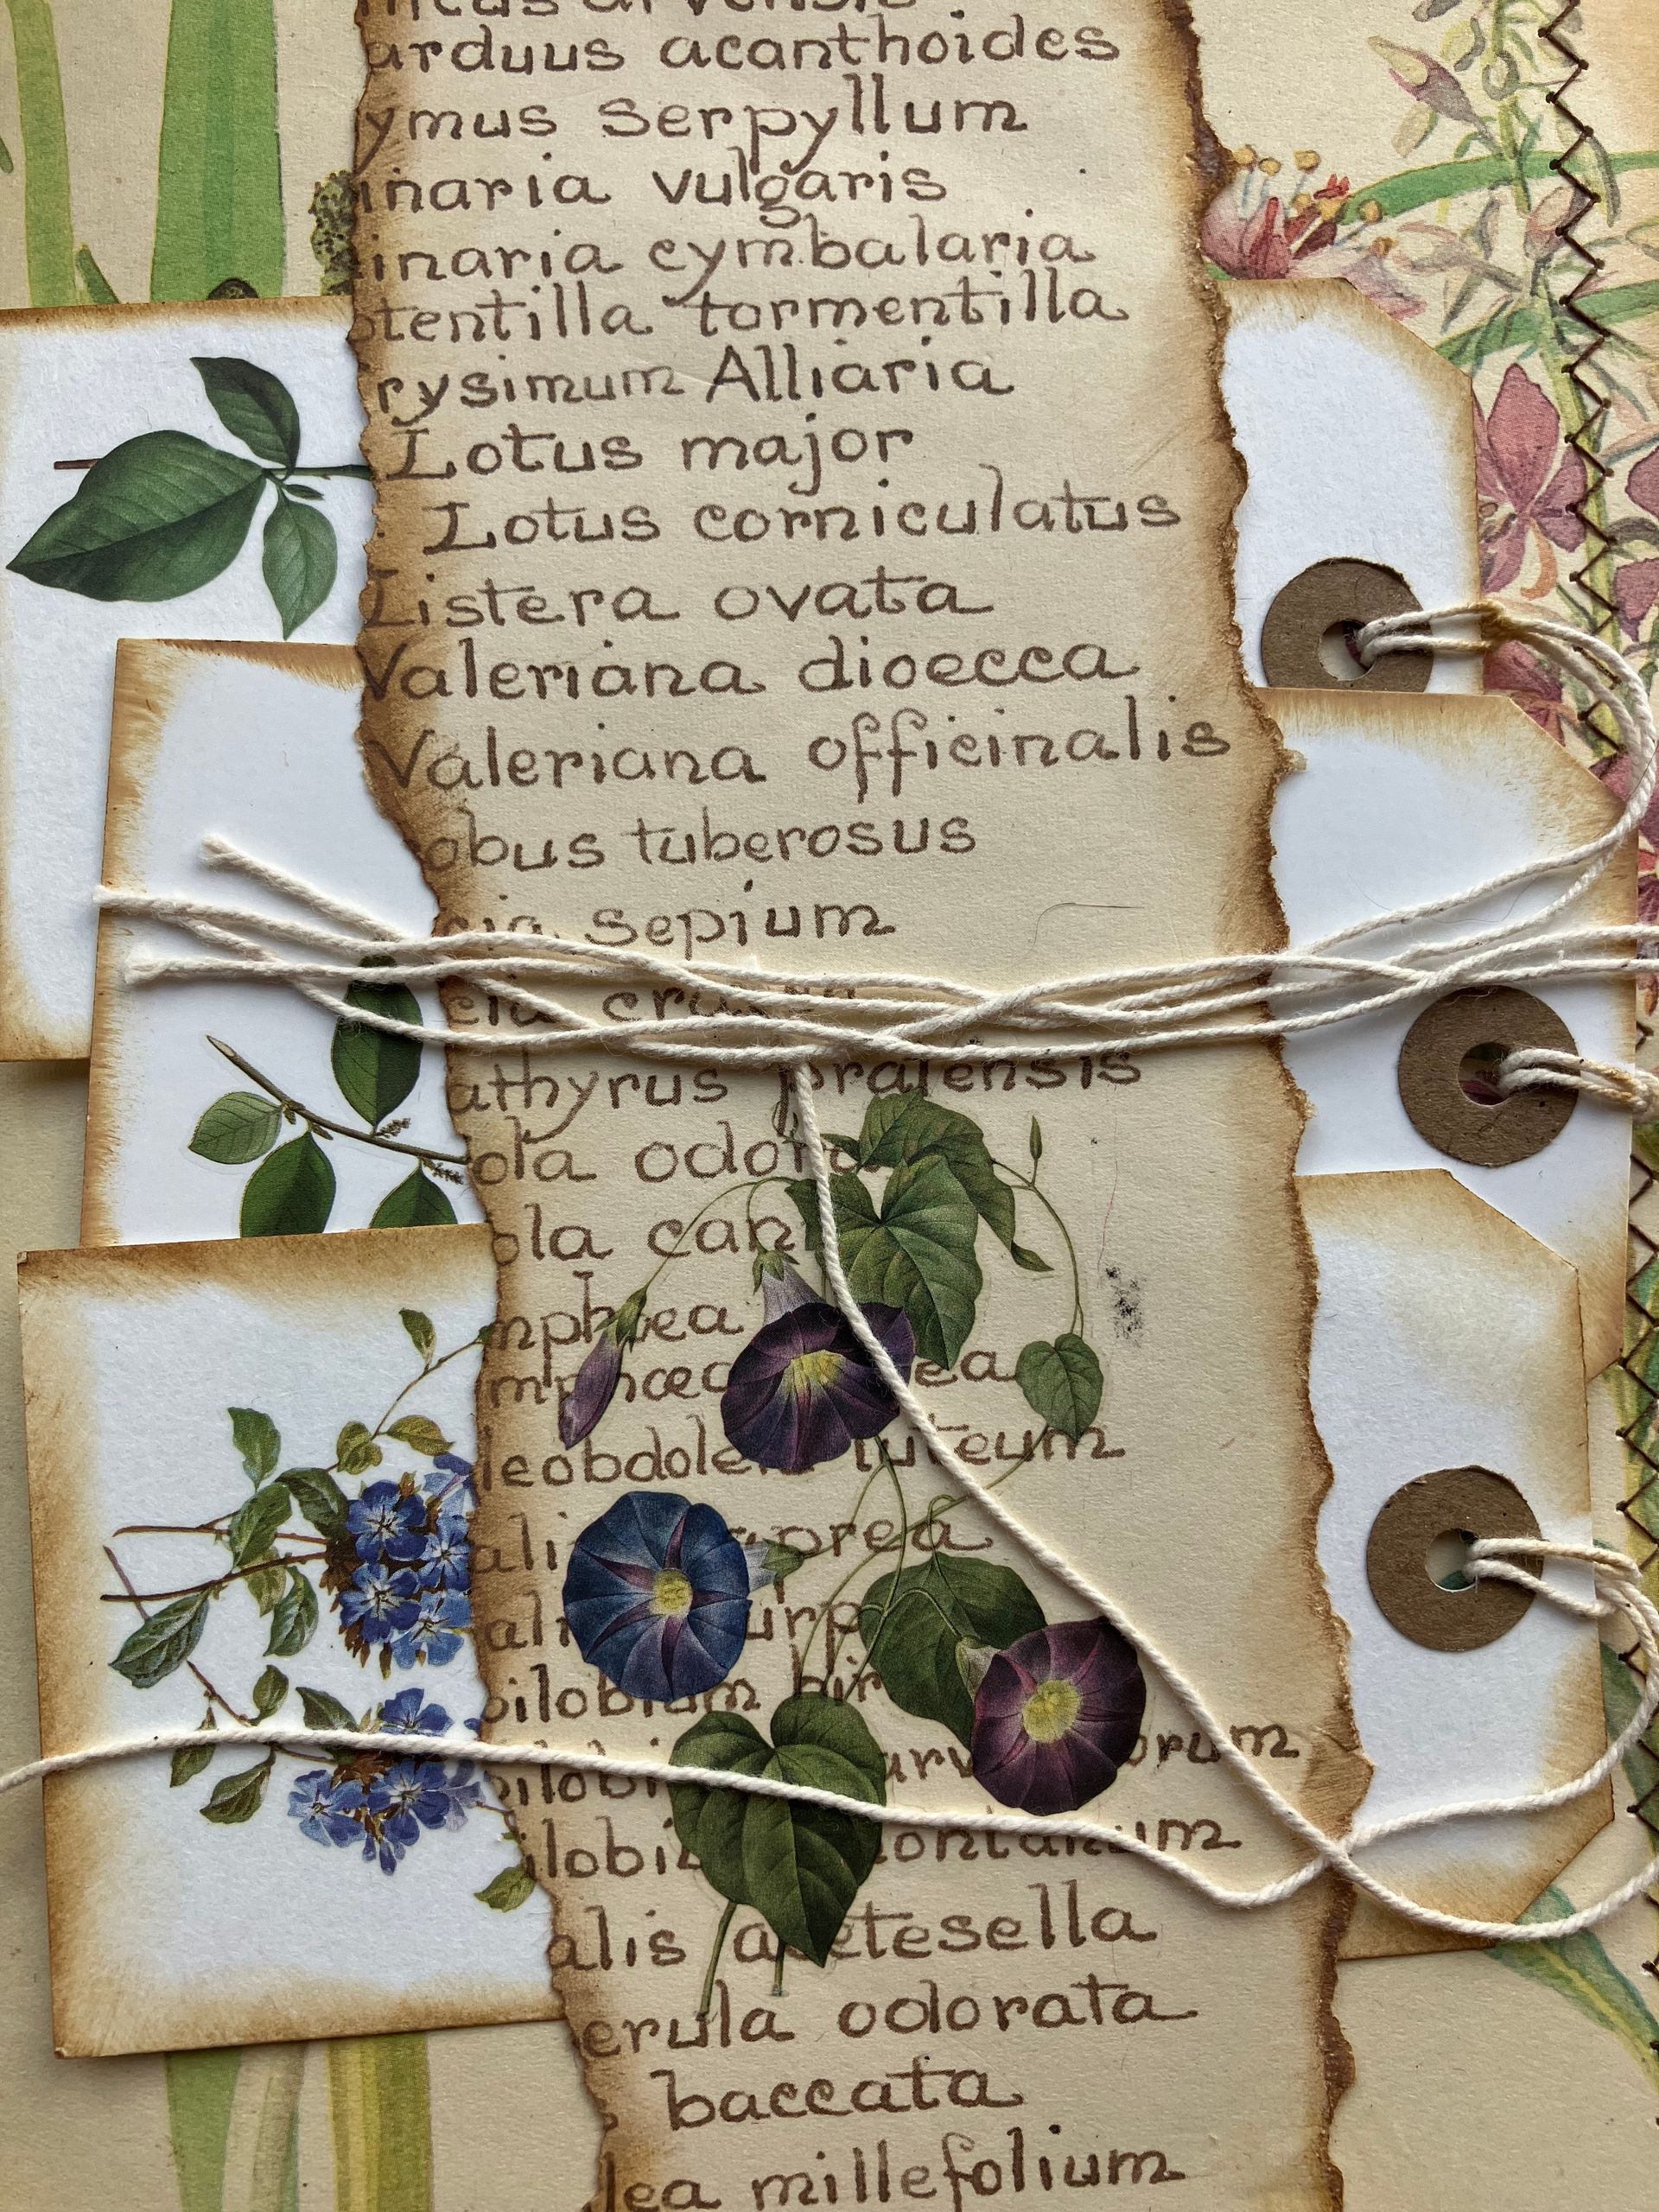 arduus acanthoides
ymus serpyllum
inaria vulgaris
inaria cymbalaria
otentilla tormentilla
rysimum Alliaria
Lotus major
Lotus corniculatus
Listera ovata
Valeriana dioecca
Valeriana officinalis
obus tuberosus
cia sepium
cia
athyrus pratensis
ola odora
ola can
mphœa
luteum
prea
alis acetesella
erula odorata
baccata
lea millefolium